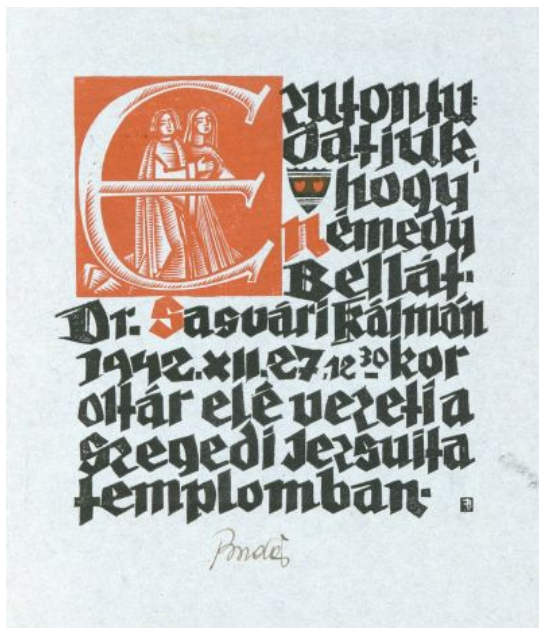 Ezuton tu=
datjuk,
hogy
némedy
Bellát.
Dr. Sasvári Kálmán
1942.XII.27, 12 30 kor
oltár elé vezeti a
szegedi Jezsuita
templomban.